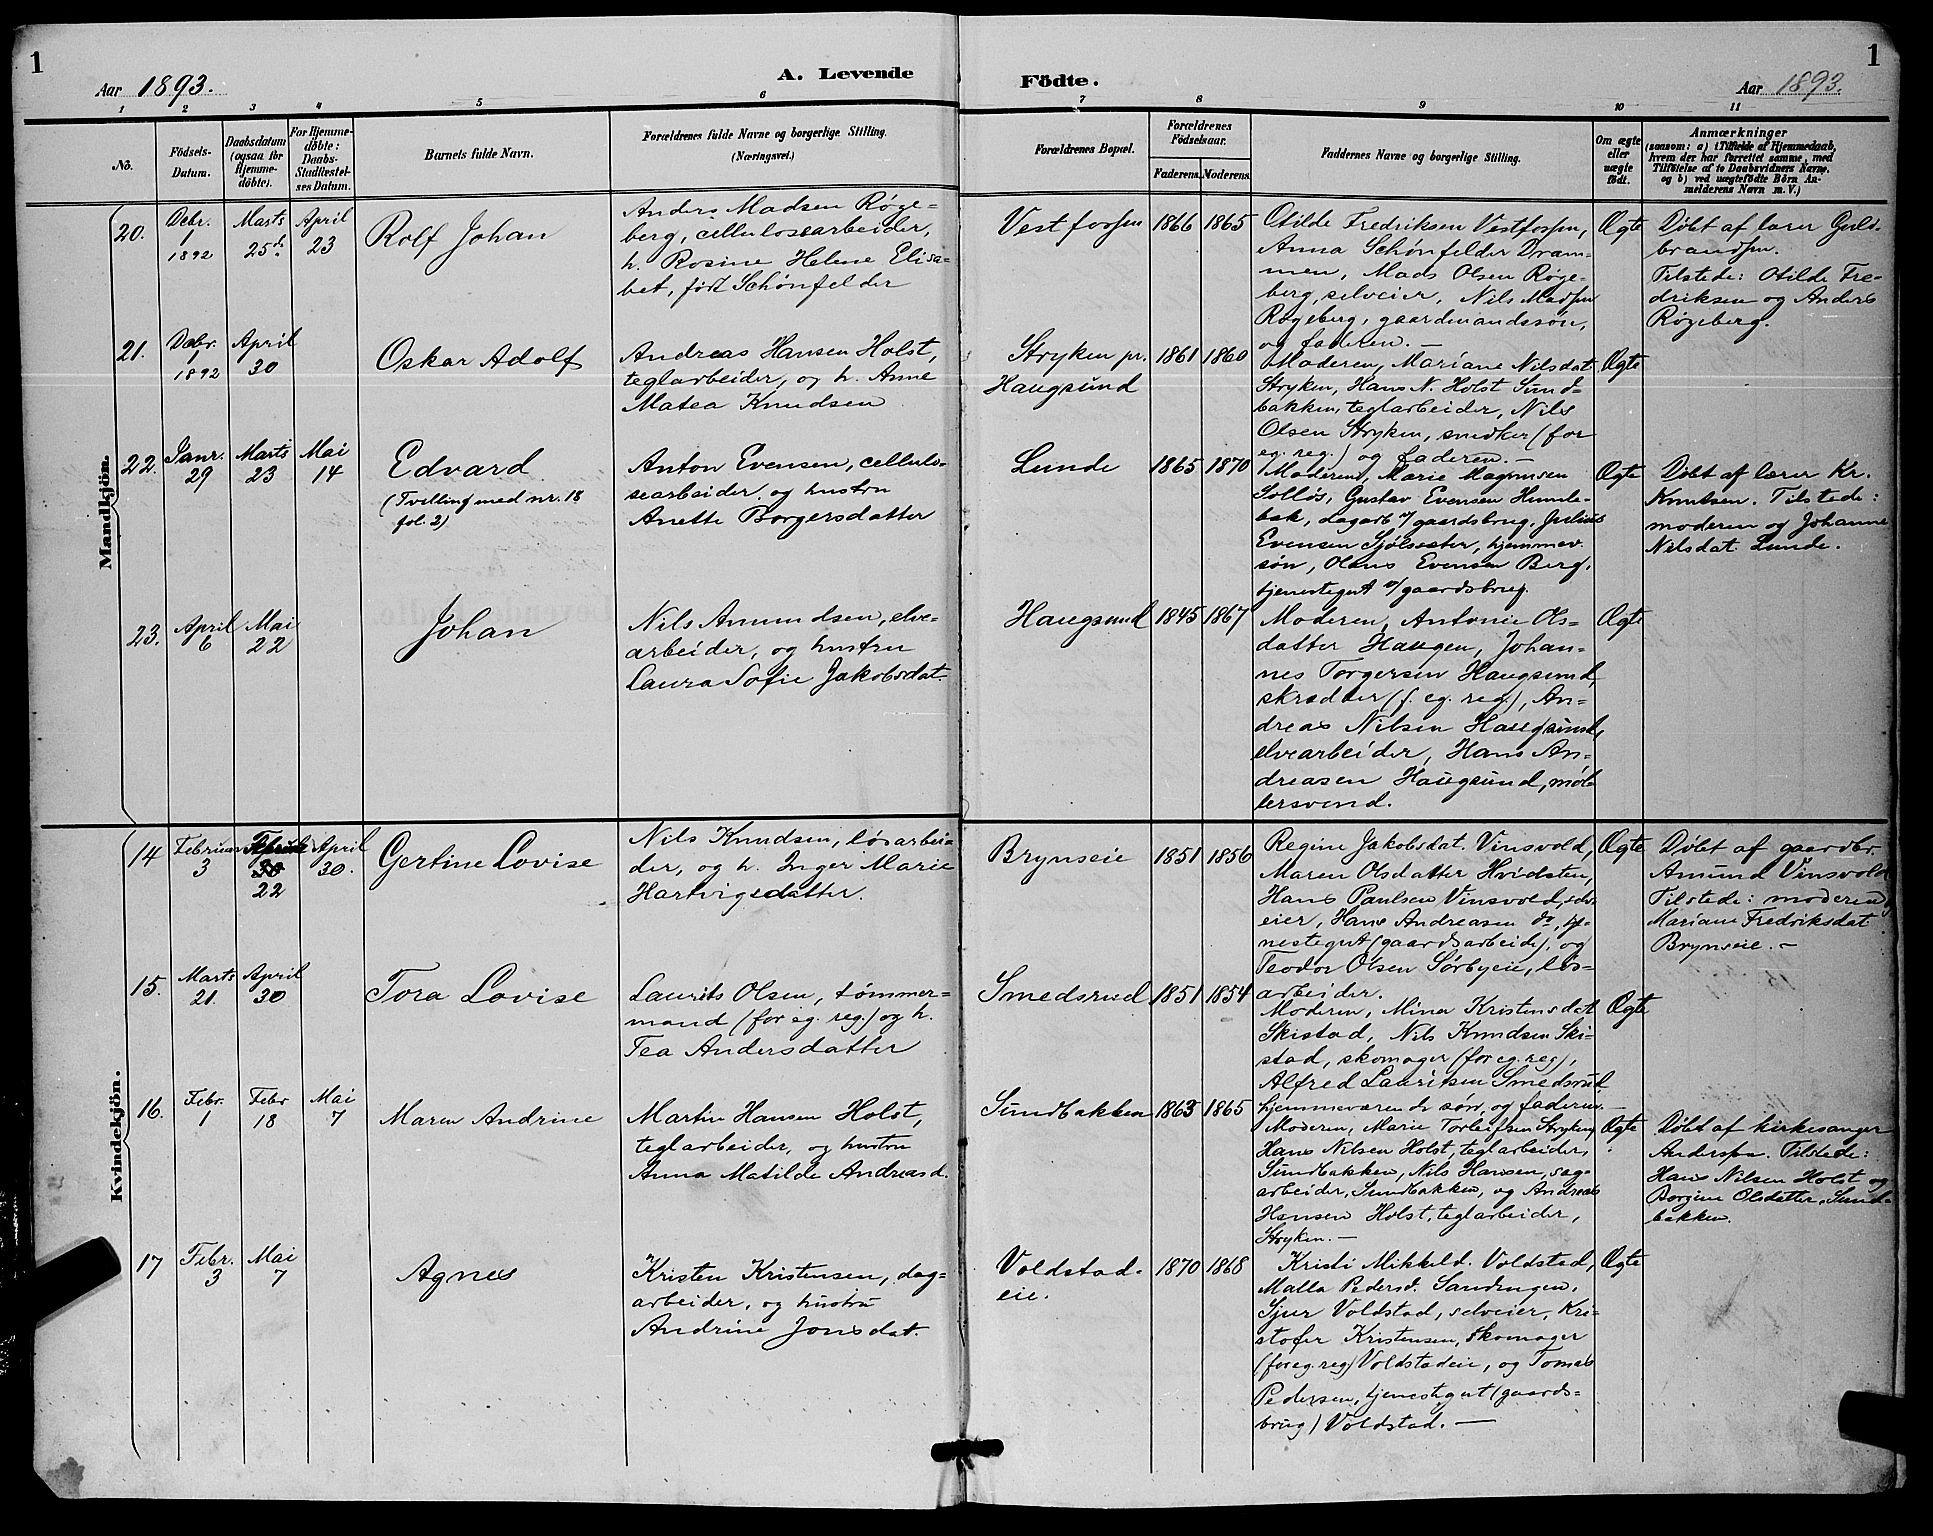 1
Aar 1893.
A. Levende
Födte.
Aar 1893.
1
1 2 3 4 5 6 7 8 9 10 11
No.
Födsels-
Datum.
Daabsdatum
(ogsaa for
Hjemme-
döbte).
For Hjemme-
döbte:
Daabs-
Stadfæstel-
ses Datum.
Barnets fulde Navn.
Forældrenes fulde Navne og borgerlige Stilling.
(Næringsvei.)
Forældrenes Bopæl.
Forældrenes
Födselsaar.
Faderens. Moderens.
Faddernes Navne og borgerlige Stilling.
Om ægte
eller
uægte
födt.
Anmærkninger
(saasom: a) i Tilfælde af Hjemmedaab,
hvem der har forrettet samme, med
Tilföielse af to Daabsvidners Navne,
og b) ved uægtefödte Börn An-
melderens Navn m. V.)
Mandkjön.
20.
Debr.
1
1892
Marts
25d.
April
23
Rolf Johan
Anders Madsen Røge-
berg, cellulosearbeider,
h. Rosine Helene Elisa-
bet, født Schönfelder
Vestfossen
1866 1865
Otilde Fredriksen Vestfossen,
Anna Schönfelder Dram-
men, Mads Olsen Røge-
berg, selveier, Nils Madsen
Røgeberg, gaardmandssøn,
og faderen. —
Ægte
Døbt af lærer Guld-
brandsen.
Tilstede: Otilde Fre-
driksen og Anders
Røgeberg.
21.
Debr.
1
1892
April
30
Oskar Adolf
Andreas Hansen Holst,
teglarbeider, og h. Anne
Matea Knudsen
Stryken pr.
Haugsund
1861 1860
Moderen, Mariane Nilsdat
Stryken, Hans N. Holst Sund-
bakken, teglarbeider, Nils
Olsen Stryken, snedker (for
eg. reg.) og faderen. —
Ægte
22.
Janr.
29
Marts
23
Mai
14
Edvard
(Tvilling med nr. 18
fol. 2)
Anton Evensen, cellulo-
searbeider, og hustru
Anette Borgersdatter
Lunde
1865 1870
Moderen, Marie Magnusen
Solløs, Gustav Evensen Humle-
bæk, dagarb v/ gaardsbrug, Julius
Evensen Sjølseter, hjemmev.
søn, Olaus Evensen Berg,
tjenestegut v/ gaardsbrug.
Ægte
Døbt af lærer Kr.
Knutsen. Tilstede:
moderen og Johanne
Nilsdat. Lunde.
23.
April
6
Mai
22
Johan
Nils Amundsen, elve-
arbeider, og hustru
Laura Sofie Jakobsdat.
Haugsund
1845 1867
Moderen, Antonie Ols-
datter Haugen, Johan-
nes Torgersen Haugsund,
skrædder (f. eg. reg.), An-
dreas Nilsen Haugsund,
elvearbeider, Hans An-
dreasen Haugsund, møl-
lersvend.
Ægte
Kvindekjön.
14
Februar
3
22
April
30.
Gertine Lovise
Nils Knudsen, løsarbei-
der, og h. Inger Marie
Hartvigsdatter.
Brynseie
1851 1856
Regine Jakobsdat. Vinsvold,
Maren Olsdatter Hvidsten,
Hans Paulsen Vinsvold, selv-
eier, Hans Andreasen do, tje-
nestegut (gaardsarbeide), og
Teodor Olsen Sørbyeie, løs-
arbeider.
Ægte
Døbt af gaardbr.
Amund Vinsvold
Tilstede: moderen,
Mariane Fredriksdat
Brynseie. —
15.
Marts
21.
April
30
Tora Lovise
Laurits Olsen, tømmer-
mand (for eg. reg.) og h.
Tea Andersdatter
Smedsrud
1851 1854
Moderen, Mina Kristensdat
Skistad, Nils Knudsen Ski-
stad, skomager (for eg. reg),
Alfred Lauritsen Smedsrud
hjemmeværende søn, og faderen. —
Ægte
16.
Febr.
1
Febr
18
Mai
7
Maren Andrine
Martin Hansen Holst,
teglarbeider, og hustru
Anna Matilde Andreasd.
Sundbakken
1863 1865
Moderen, Marie Torleifsen Stryken,
Hans Nilsen Holst, teglarbeider,
Sundbakken, Nils Hansen, sag-
arbeider, Sundbakken, og Andreas
Hansen Holst, teglarbeider,
Stryken. —
Ægte
Døbt af kirkesanger
Anderssen. Tilstede:
Hans Nilsen Holst og
Borgine Olsdatter, Sund-
bakken.
17
Febr.
3
Mai
7
Agnes
Kristen Kristensen, dag-
arbeider, og hustru
Andrine Jonsdat.
Voldstad-
eie.
1870 1868
Kristi Mikkeld. Voldstad,
Malla Pedersd. Sandungen,
Sjur Voldstad, selveier, Kri-
stofer Kristensen, skomager
(for eg. reg) Voldstadeie, og Tomas
Pedersen, tjenestegut (gaards-
brug) Voldstad. —
Ægte